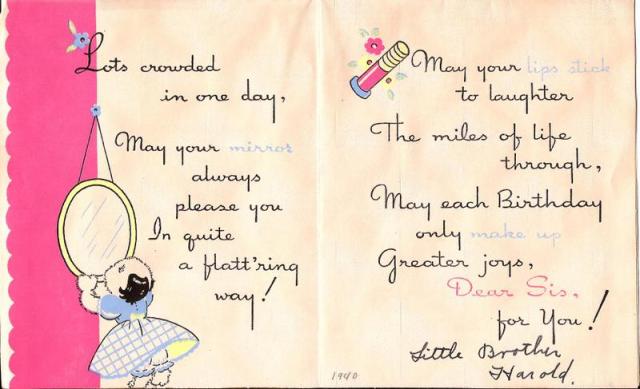 Lots crowded
in one day,
May your mirror
always
please you
In quite
a flatt'ring
way!
May your lips stick
to laughter
The miles of life
through,
May each Birthday
only make up
Greater joys,
Dear Sis,
for You!
Little Brother
Harold.
1940